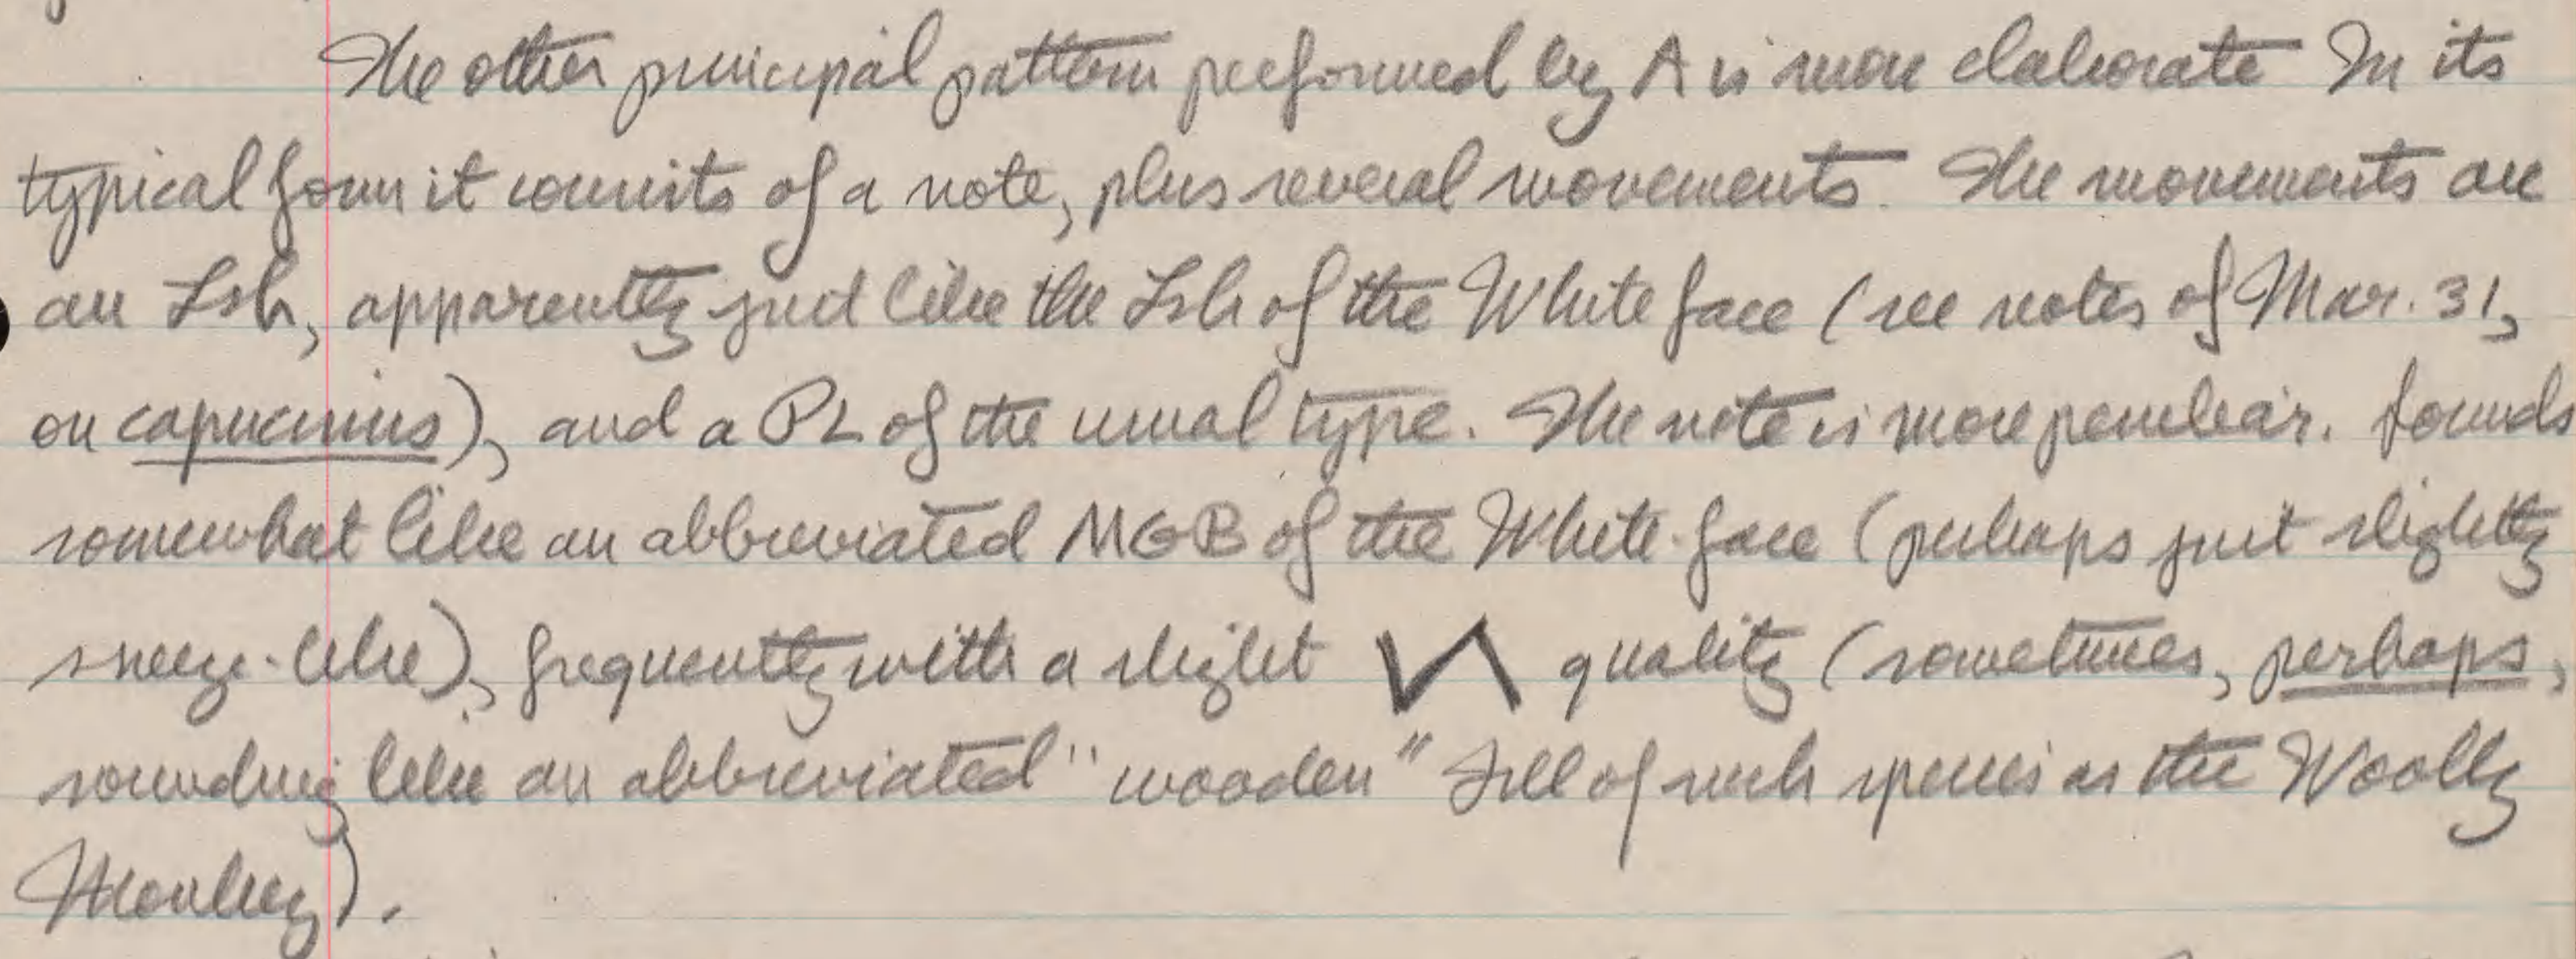 The other principal pattern performed by A is more elaborate In its
typical form it consists of a note, plus several movements. The movements are
an Lsh, apparently just like the Lsh of the White face (see notes of Mar. 31,
on capucinus), and a PL of the usual type. The note is more peculiar. Sounds
somewhat like an abbreviated MGB of the White-face (perhaps just slightly
sneeze-like), frequently with a slight quality (sometimes, perhaps,
sounding like an abbreviated "wooden" of such species as the Woolly
Monkey).